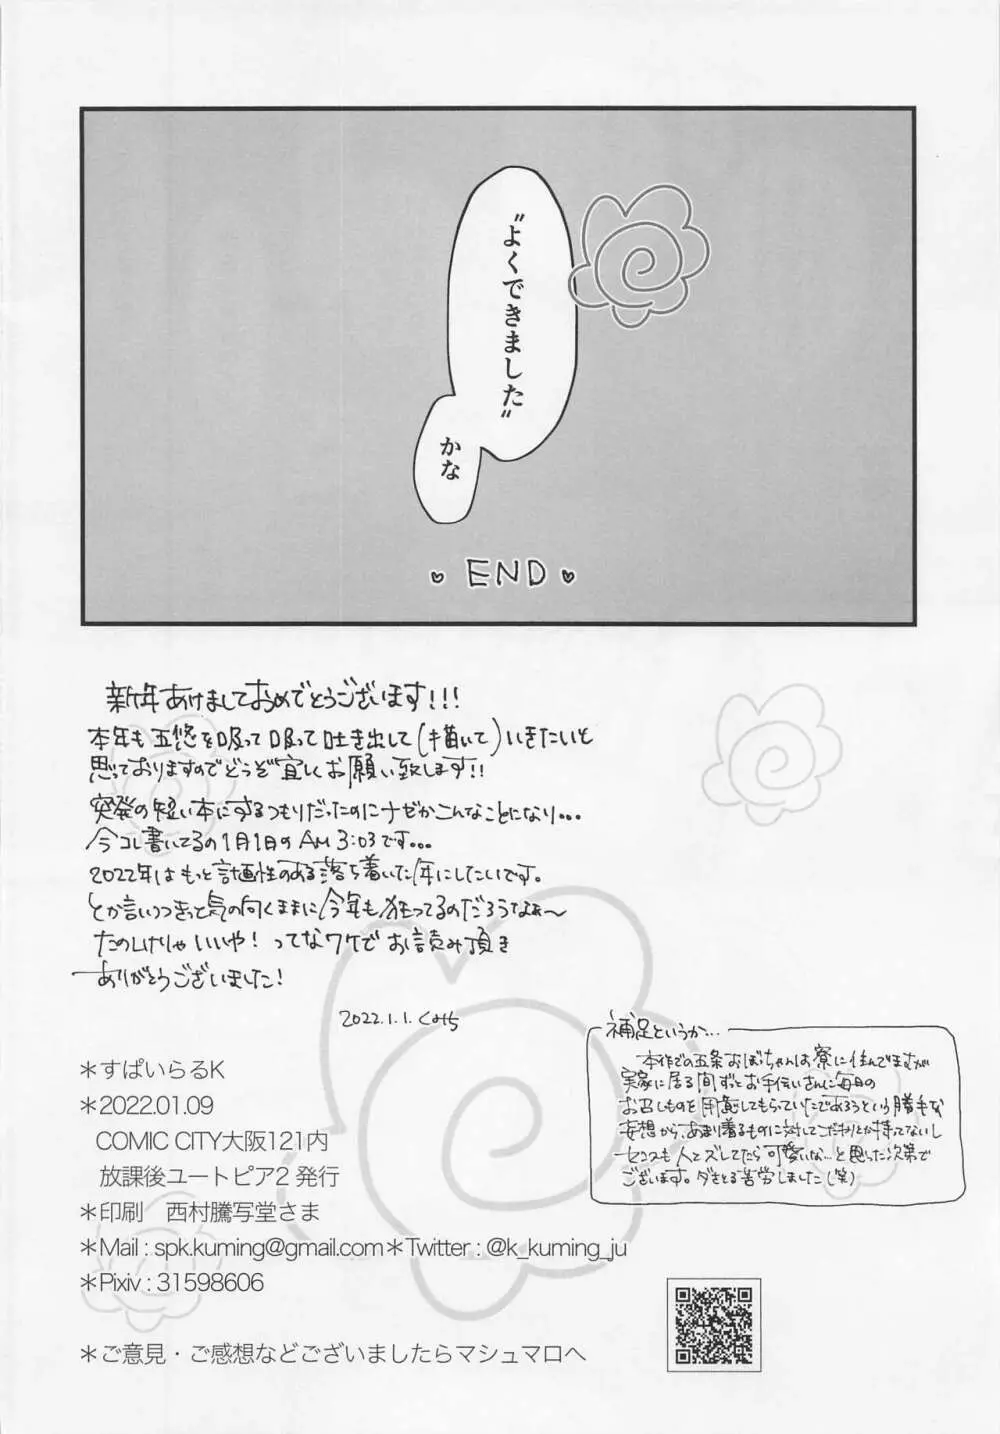 “よくできました”
かな
END
新年あけましておめでとうございます!!!
本年も五悠を吸って吸って吐き出して(描いて)いきたいと
思っておりますのでどうぞ宜しくお願い致します!!
突発の短い本にするつもりだったのにナゼかこんなことになり...
今コレ書いてるの1月1日のAM 3:03です...
2022年はもっと計画性のある落ち着いた年にしたいです。
とか言いつつきっと気の向くままに今年も狂ってるのだろうなぁ〜
たのしけりゃいいや!ってなワケでお読み頂き
ありがとうございました!
2022.1.1.くみち
補足というか...
本作での五条おぼっちゃんは寮に住んでますが
実家に居る間ずっとお手伝いさんに毎日の
お召しものを用意してもらっていたであろうという勝手な
妄想から、あまり着るものに対してこだわりとか持ってないし
センスも人とズレてたら可愛いな...と思った次第で
ございます。ダサくする苦労しました(笑)
＊すぱいらるK
＊2022.01.09
COMIC CITY大阪121内
放課後ユートピア2 発行
＊印刷　西村謄写堂さま
＊Mail : spk.kuming@gmail.com＊Twitter : @k_kuming_ju
＊Pixiv : 31598606
＊ご意見・ご感想などございましたらマシュマロへ